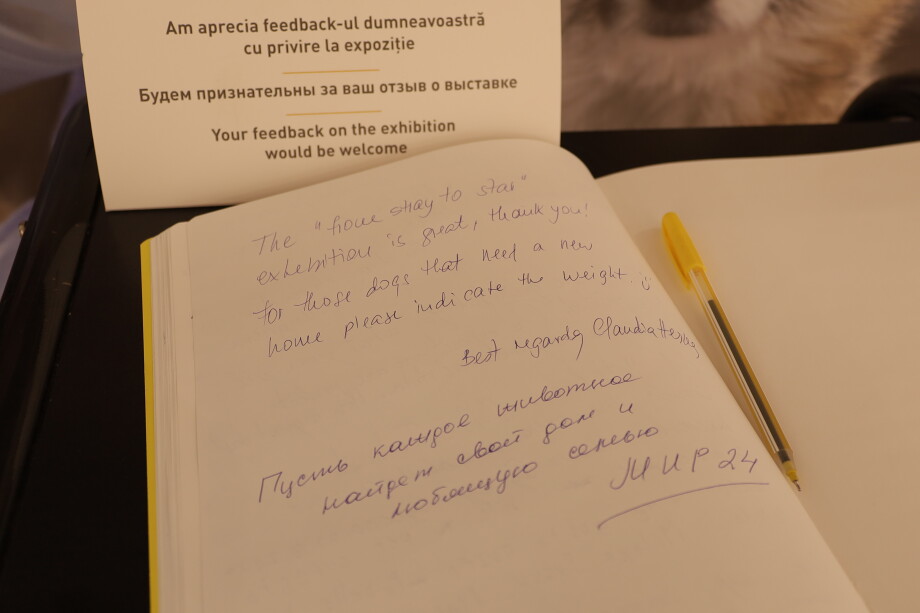 Am aprecia feedback-ul dumneavoastră
cu privire la expoziție
Будем признательны за ваш отзыв о выставке
Your feedback on the exhibition
would be welcome
The "from stray to star"
exhebition is great, thank you!
For those dogs that need a new
home please indicate the weight. ü
Best regards, Claudia
Пусть каждое животное
найдет свой дом и
любящую семью
МИР 24